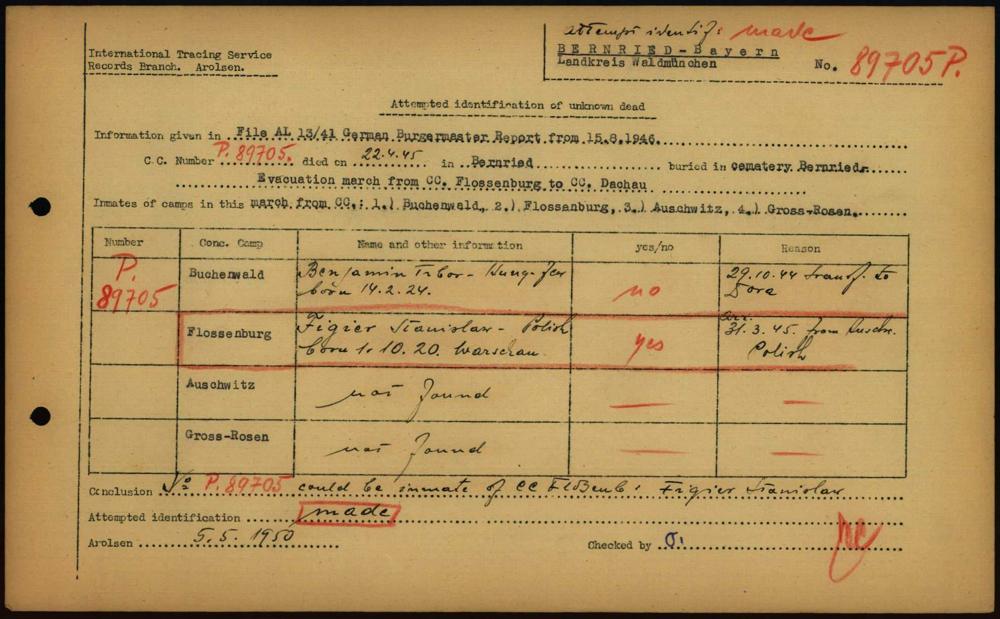 attempt identif: made
International Tracing Service
Records Branch. Arolsen.
BERNRIED-Bayern
Landkreis Waldmünchen
No. 89705 P.
Attempted identification of unknown dead
Information given in File AL 13/41 German Burgermaster Report from 15.8.1946.
C.C. Number P. 89705. died on 22.4.45 in Bernried buried in cematery Bernried.
Evacuation march from CC. Flossenburg to CC. Dachau
Inmates of camps in this march from CC.: 1.) Buchenwald, 2.) Flossenburg, 3.) Auschwitz, 4.) Gross-Rosen.
Number Conc. Camp Name and other information yes/no Reason
P. 89705
Buchenwald Benjamin Tibor - Hung. Jew no 29.10.44 transf. to
born 14.2.24. Dora
Flossenburg Figier Stanislaw - Polish yes arr. 31.3.45. from Auschw.
born 1.10.20. Warschau. Polish
Auschwitz not found — —
Gross-Rosen not found — —
Conclusion No P. 89705 could be inmate of CC Floßenb: Figier Stanislaw
Attempted identification made
Arolsen 5.5.1950 Checked by